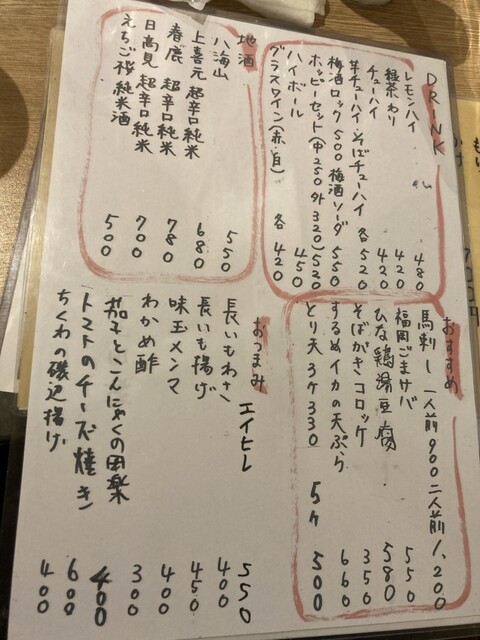 DRINK
レモンハイ 480
緑茶わり 420
チューハイ 420
芋チューハイ・そばチューハイ 各520
梅酒ロック 500 梅酒ソーダ 550
ホッピーセット(中250 外320) 520
ハイボール 450
グラスワイン(赤・白) 各420
地酒
八海山 550
上喜元 超辛口純米 680
春鹿 超辛口純米 780
日高見 超辛口純米 700
えちご桜 純米酒 500
おすすめ
馬刺し 一人前900 二人前1,200
福岡ごまサバ 550
ひな鶏湯豆腐 580
そばがきコロッケ 350
するめイカの天ぷら 660
とり天 3ケ330 5ケ 500
おつまみ
エイヒレ 550
長いもわさ 400
長いも揚げ 450
味玉メンマ 400
わかめ酢 300
茄子とこんにゃくの田楽 400
トマトのチーズ焼き 600
ちくわの磯辺揚げ 400